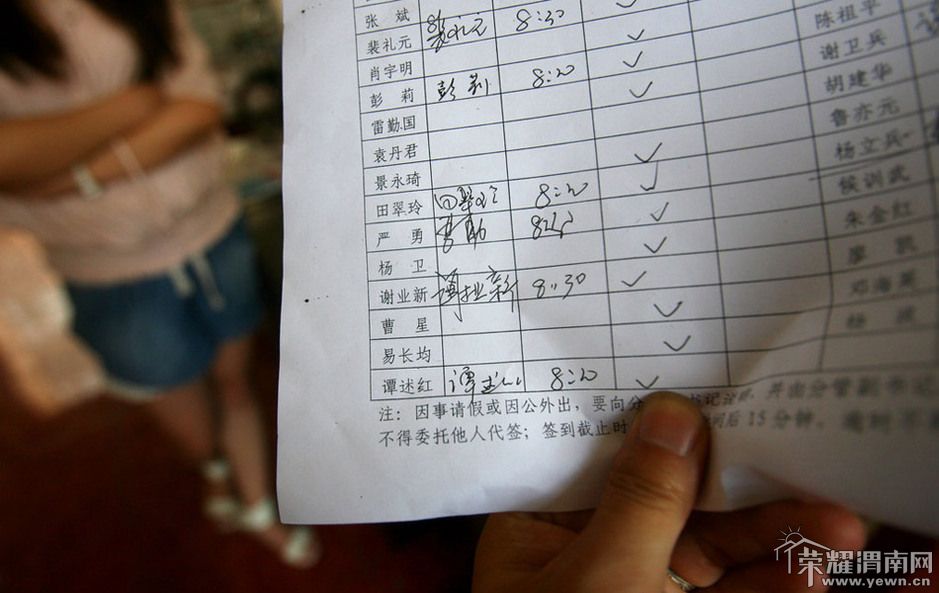 张 斌
裴礼元 裴礼元 8:30 陈祖平
肖宇明 谢卫兵
彭 莉 彭莉 8:20 胡建华
雷勤国 鲁亦元
袁丹君 杨立兵
景永琦 侯训武
田翠玲 田翠玲 8:20 朱金红
严 勇 廖 凯
杨 卫 邓海英
谢业新 谢业新 8:30 杨 波
曹 星
易长均
谭述红 谭述红 8:20
注：因事请假或因公外出，要向分 书记
不得委托他人代签；签到截止时 间后15分钟，
荣耀渭南网
www.yewn.cn